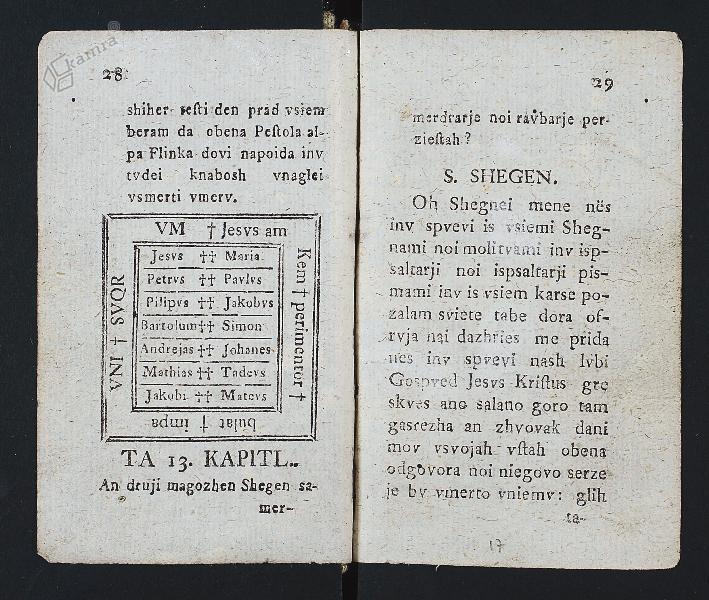 kamra
28
shiher resti den prad vsiem
beram da obena Peſtola al-
pa Flinka dovi napoida inv
tvdei knabosh vnaglei
vsmerti vmerv.
VM † Jesvs am
Kem † perimentor †
Jesvs †† Maria.
Petrvs †† Pavlvs
Pilipvs †† Jakobvs
Bartolum †† Simon
Andrejas †† Johanes
Mathias †† Tadevs
Jakobi †† Matevs
VNI † SVQR
TA 13. KAPITL..
An druji magozhen Shegen sa-
mer-
29
merdrarje noi ravbarje per-
zieſtah?
S. SHEGEN.
Oh Shegnei mene nës
inv spvevi is vsiemi Sheg-
nami noi molitvami inv isp-
saltarji noi ispsaltarji pis-
mami inv is vsiem karse po-
zalam sviete tabe dora of-
rvja nai dazhries me prida
nes inv spvevi nash lvbi
Gospved Jesvs Kriſtus gre
skves ano salano goro tam
gasrezha an zhvovak dani
mov vsvojah vſtah obena
odgovora noi niegovo serze
je bv vmerto vniemv: glih
ta-
17